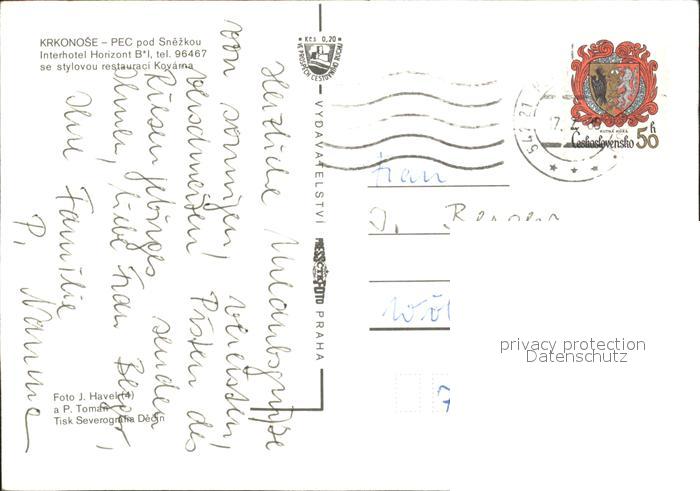 KRKONOŠE – PEC pod Sněžkou
Interhotel Horizont B*I, tel. 96467
se stylovou restaurací Kovárna
Kčs 0,20
VE PROSPĚCH CESTOVNÍHO RUCHU
VYDAVATELSTVÍ
PRESSFOTO
PRAHA
Herzliche Urlaubsgrüße
vom sonnigen, vereisten,
verschneiten Pisten des
Riesengebirges senden
Ihnen, liebe Frau
Ihre Familie
P.
Foto J. Havel (4)
a P. Toman
Tisk Severografia Děčín
542 21
KUTNÁ HORA
Československo 50 h
Frau
privacy protection
Datenschutz
7